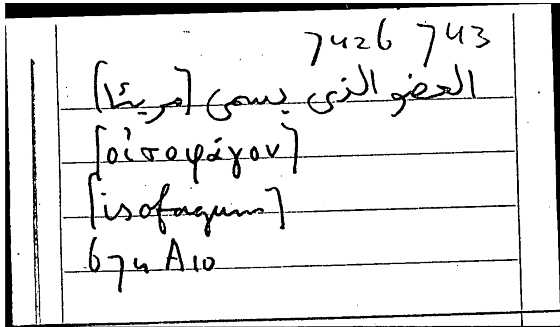 7426 743
العضو الذى يسمى [مريئا]
[οἰσοφάγον]
[isofagum]
674 A10